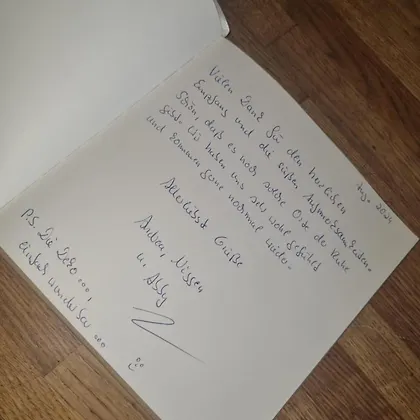 Aug. 2024
Vielen Dank für den herzlichen
Empfang und die süßen Aufmerksamkeiten.
Schön, daß es noch solche Orte der Ruhe
gibt. Wir haben uns sehr wohl gefühlt
und kommen gerne nochmal wieder.
Allerliebst Grüße
Andrea,
u. Abby
P.S. Die Deko...,
einfach wunderbar...